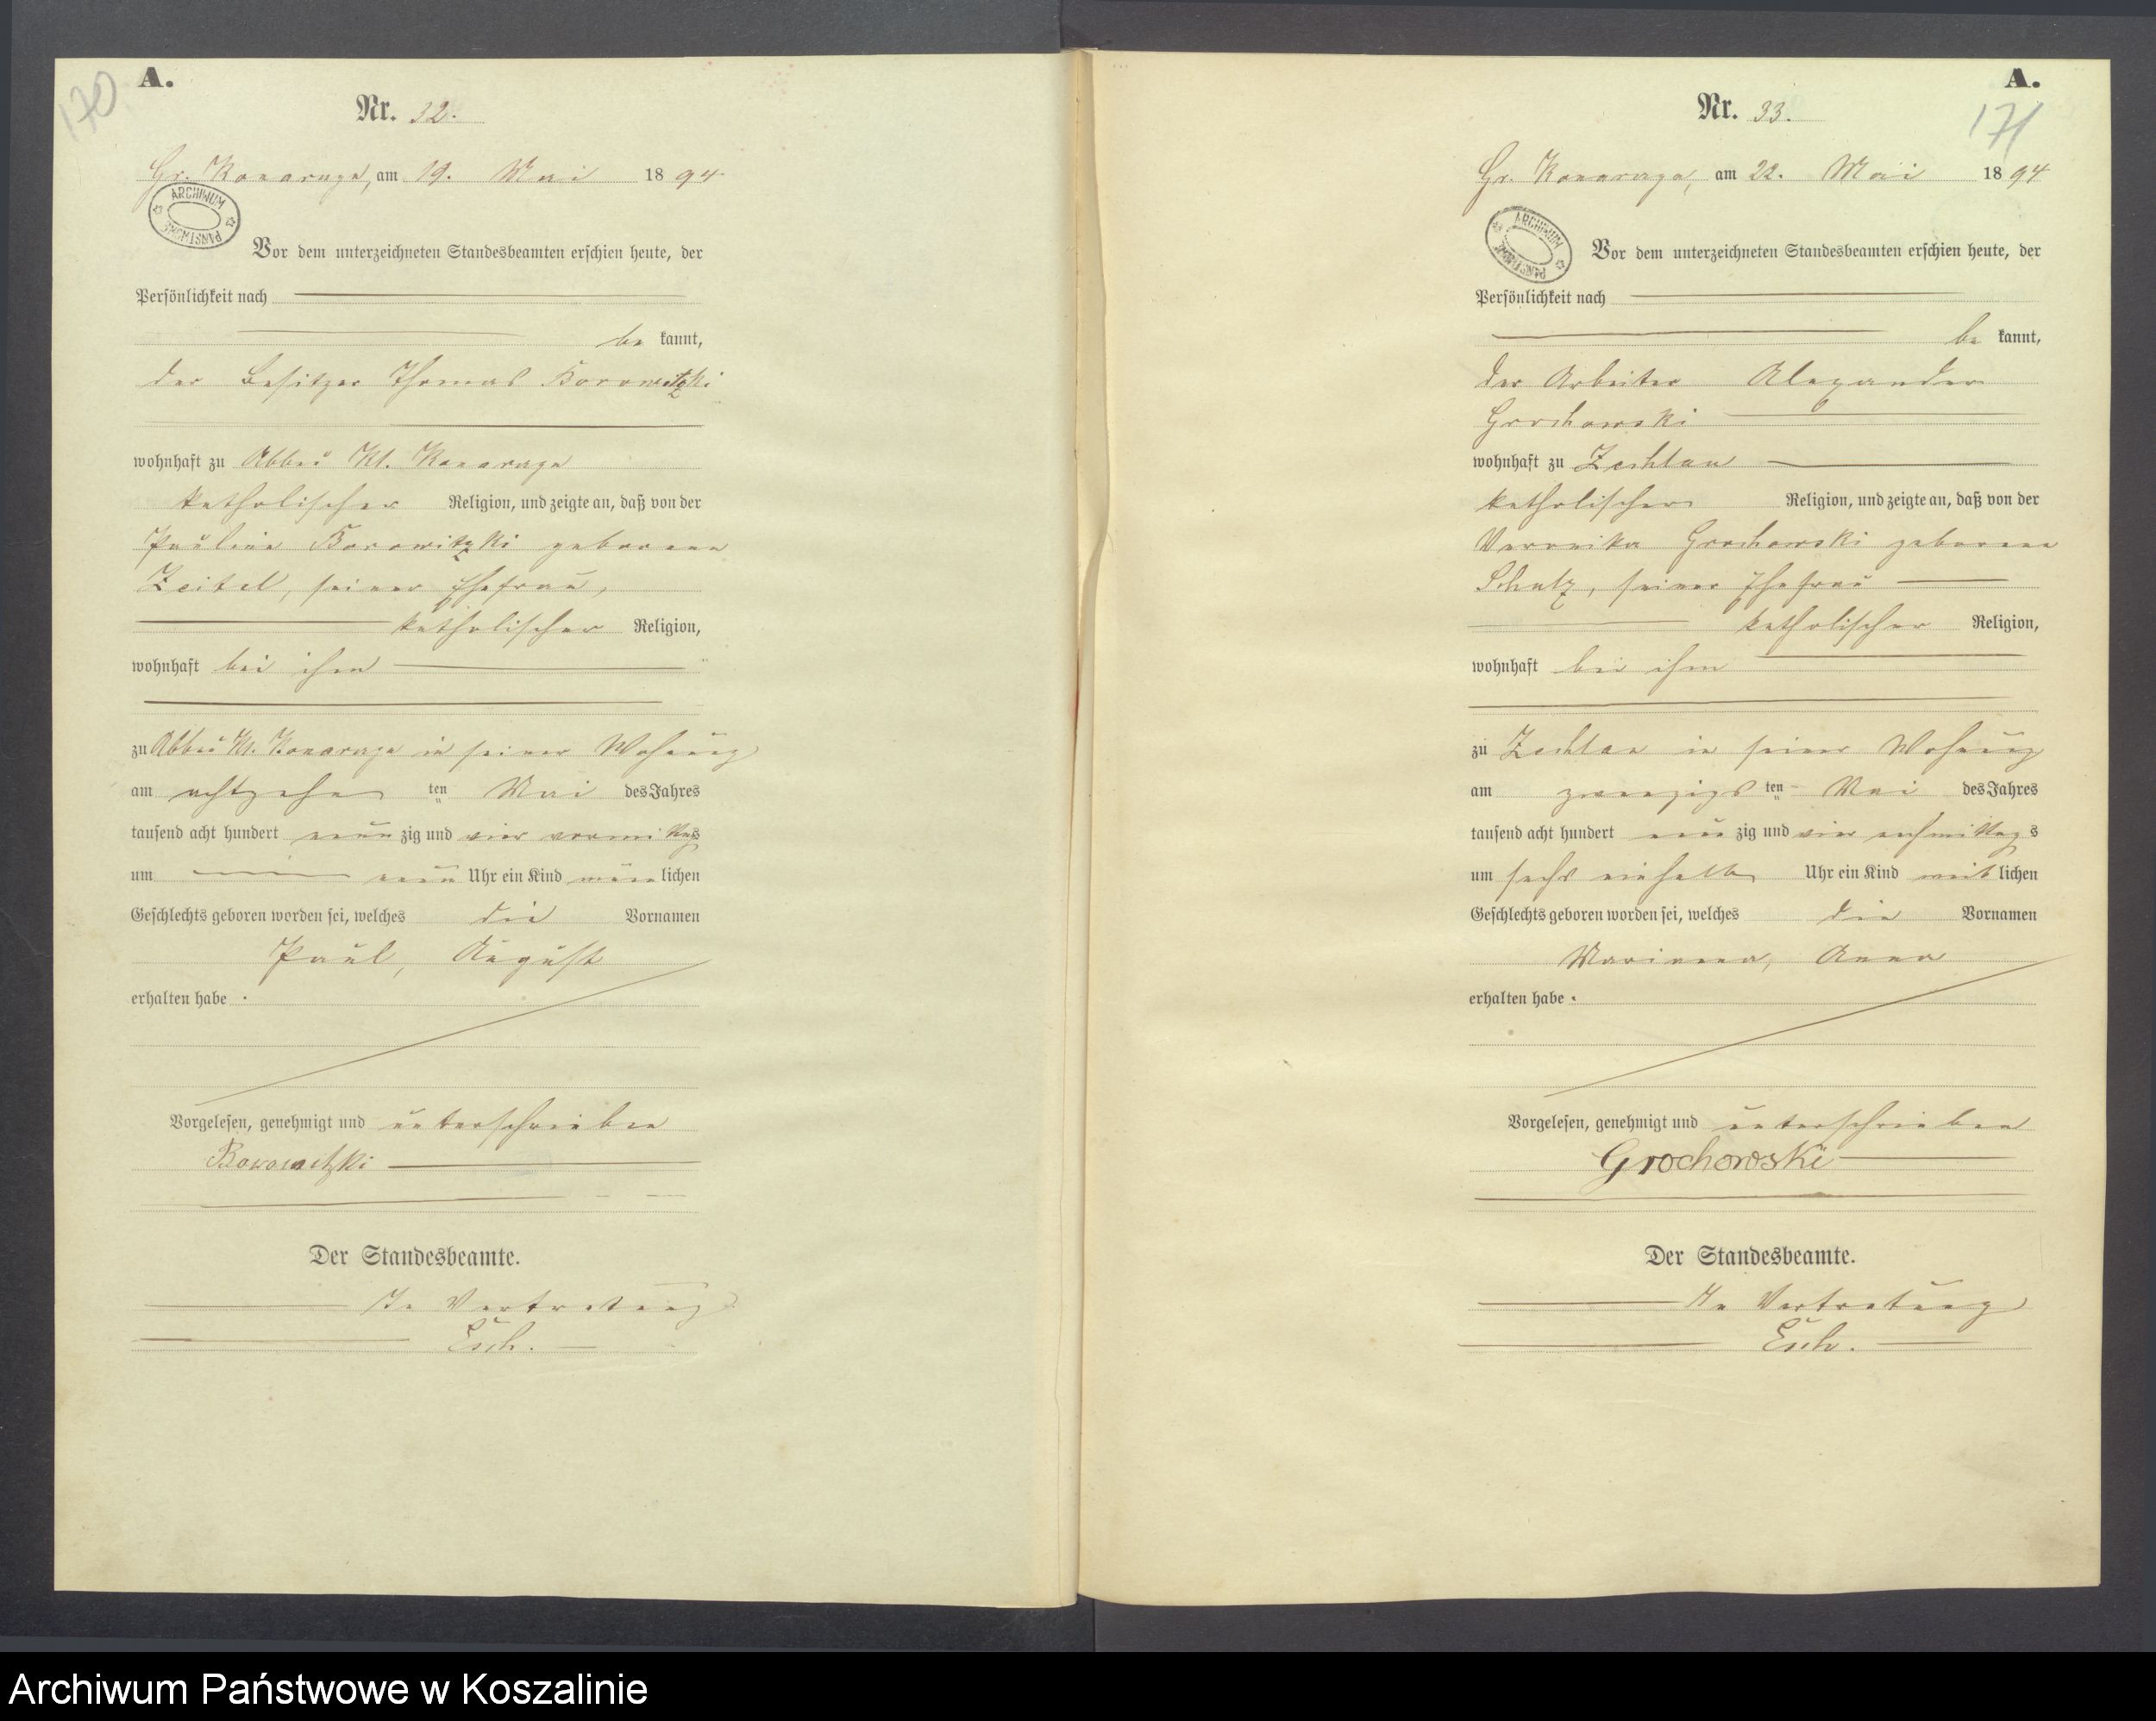 170
A.
Nr. 32.
Gr. Konarzyn, am 19. Mai 1894
ARCHIWUM PAŃSTWOWE
Vor dem unterzeichneten Standesbeamten erschien heute, der
Persönlichkeit nach
be kannt,
der Besitzer Thomas Borowitzki
wohnhaft zu Abbau Kl. Konarzyn
katholischer Religion, und zeigte an, daß von der
Pauline Borowitzki geborene
Zeitel, seiner Ehefrau,
katholischer Religion,
wohnhaft bei ihm
zu Abbau Kl. Konarzyn in seiner Wohnung
am achtzehn ten Mai des Jahres
tausend acht hundert neun zig und vier vormittags
um neun Uhr ein Kind männ lichen
Geschlechts geboren worden sei, welches die Vornamen
Paul, August
erhalten habe.
Vorgelesen, genehmigt und unterschrieben
Borowitzki
Der Standesbeamte.
In Vertretung
Esch.
A.
171
Nr. 33.
Gr. Konarzyn, am 22. Mai 1894
ARCHIWUM PAŃSTWOWE
Vor dem unterzeichneten Standesbeamten erschien heute, der
Persönlichkeit nach
be kannt,
der Arbeiter Alexander
Grochowski
wohnhaft zu Zechlau
katholischer Religion, und zeigte an, daß von der
Veronika Grochowski geborene
Schulz, seiner Ehefrau
katholischer Religion,
wohnhaft bei ihm
zu Zechlau in seiner Wohnung
am zwanzigs ten Mai des Jahres
tausend acht hundert neun zig und vier nachmittag s
um sechs einhalb Uhr ein Kind weib lichen
Geschlechts geboren worden sei, welches die Vornamen
Marianna, Anna
erhalten habe.
Vorgelesen, genehmigt und unterschrieben
Grochowski
Der Standesbeamte.
In Vertretung
Esch.
Archiwum Państwowe w Koszalinie